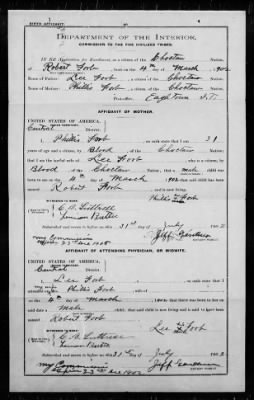 BIRTH AFFIDAVIT.
DEPARTMENT OF THE INTERIOR,
COMMISSION TO THE FIVE CIVILIZED TRIBES.
IN RE Application for Enrollment, as a citizen of the Choctaw Nation,
of Robert Foob, born on the 4th day of March, 1902
Name of Father: Lee Foob a citizen of the Choctaw Nation.
Name of Mother: Phillis Foob a citizen of the Choctaw Nation.
Eagletown I.T.
AFFIDAVIT OF MOTHER.
UNITED STATES OF AMERICA,
Central District.
I, Phillis Foob, on oath state that I am 31
years of age and a citizen, by Blood, of the Choctaw Nation;
that I am the lawful wife of Lee Foob, who is a citizen, by
Blood, of the Choctaw Nation; that a male child was
born to me on 4th day of March, 1902, that said child has been
named Robert Foob, and is now living.
Phillis Foob
WITNESSES TO MARK:
Subscribed and sworn to before me this 31st day of July, 1902
Jeff Gardner
NOTARY PUBLIC.
AFFIDAVIT OF ATTENDING PHYSICIAN, OR MIDWIFE.
UNITED STATES OF AMERICA,
Central District.
I, Lee Foob, on oath state that I
attended on Mrs. Phillis Foob, wife of
on the 4th day of March, 1902; that there was born to her on
said date a Male child; that said child is now living and is said to have been
named Robert Foob
Lee Foob
WITNESSES TO MARK:
Subscribed and sworn to before me this 31st day of July, 1902
My Commission Jeff Gardner
NOTARY PUBLIC.